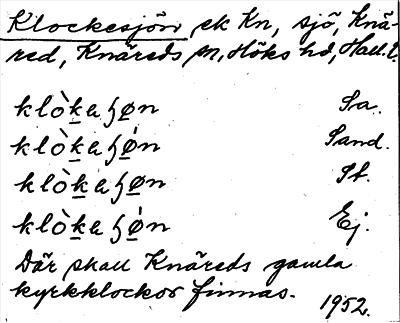 Klockesjön ek Kn, sjö, Knä-
red, Knäreds sn, Höks hd, Hall. l.
klòkaɧøn Sa.
klòkaɧǿn Sand.
klòkaɧøn St.
klòkaɧǿn Ej.
Där skall Knäreds gamla
kyrkklockor finnas.
1952.